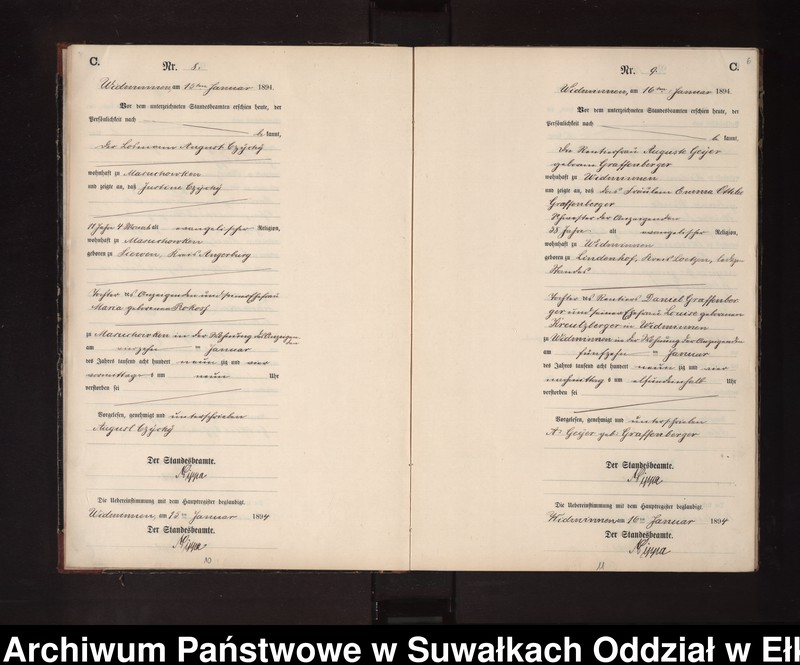 C.
Nr. 8.
Widminnen, am 15ten Januar 1894.
Vor dem unterzeichneten Standesbeamten erschien heute, der
Persönlichkeit nach
be kannt,
der Losmann August Czÿchÿ
wohnhaft zu Masuchowken
und zeigte an, daß Justine Czÿchÿ
11 Jahr 4 Monat alt evangelischer Religion,
wohnhaft zu Masuchowken
geboren zu Siewen, Kreis Angerburg
Tochter des Anzeigenden und seiner Ehefrau
Maria geborene Rokoss
zu Masuchowken in der Wohnung des Anzeigenden
am ten Januar
des Jahres tausend acht hundert neun zig und vier
vormittags um neun Uhr
verstorben sei
Vorgelesen, genehmigt und unterschrieben
August Czÿchÿ
Der Standesbeamte.
Nippa
Die Uebereinstimmung mit dem Hauptregister beglaubigt.
Widminnen, am 15ten Januar 1894
Der Standesbeamte.
Nippa
10
C.
6
Nr. 9.
Widminnen, am 16ten Januar 1894.
Vor dem unterzeichneten Standesbeamten erschien heute, der
Persönlichkeit nach
be kannt,
die Rentierfrau Auguste Geijer
geborene Graffenberger
wohnhaft zu Widminnen
und zeigte an, daß das Fräulein Emma Ottilie
Graffenberger
Schwester der Anzeigenden
38 Jahre alt evangelischer Religion,
wohnhaft zu Widminnen
geboren zu Lindenhof, Kreis Loetzen, ledigen
Standes
Tochter des Rentiers Daniel Graffenber
ger und seiner Ehefrau Louise geborenen
Kreutzberger in Widminnen
zu Widminnen in der Wohnung der Anzeigenden
am fünfzehn ten Januar
des Jahres tausend acht hundert neun zig und vier
nachmittags um elfundeinhalb Uhr
verstorben sei
Vorgelesen, genehmigt und unterschrieben
A. Geijer geb. Graffenberger
Der Standesbeamte.
Nippa
Die Uebereinstimmung mit dem Hauptregister beglaubigt.
Widminnen am 16ten Januar 1894
Der Standesbeamte.
Nippa
11
Archiwum Państwowe w Suwałkach Oddział w Eł